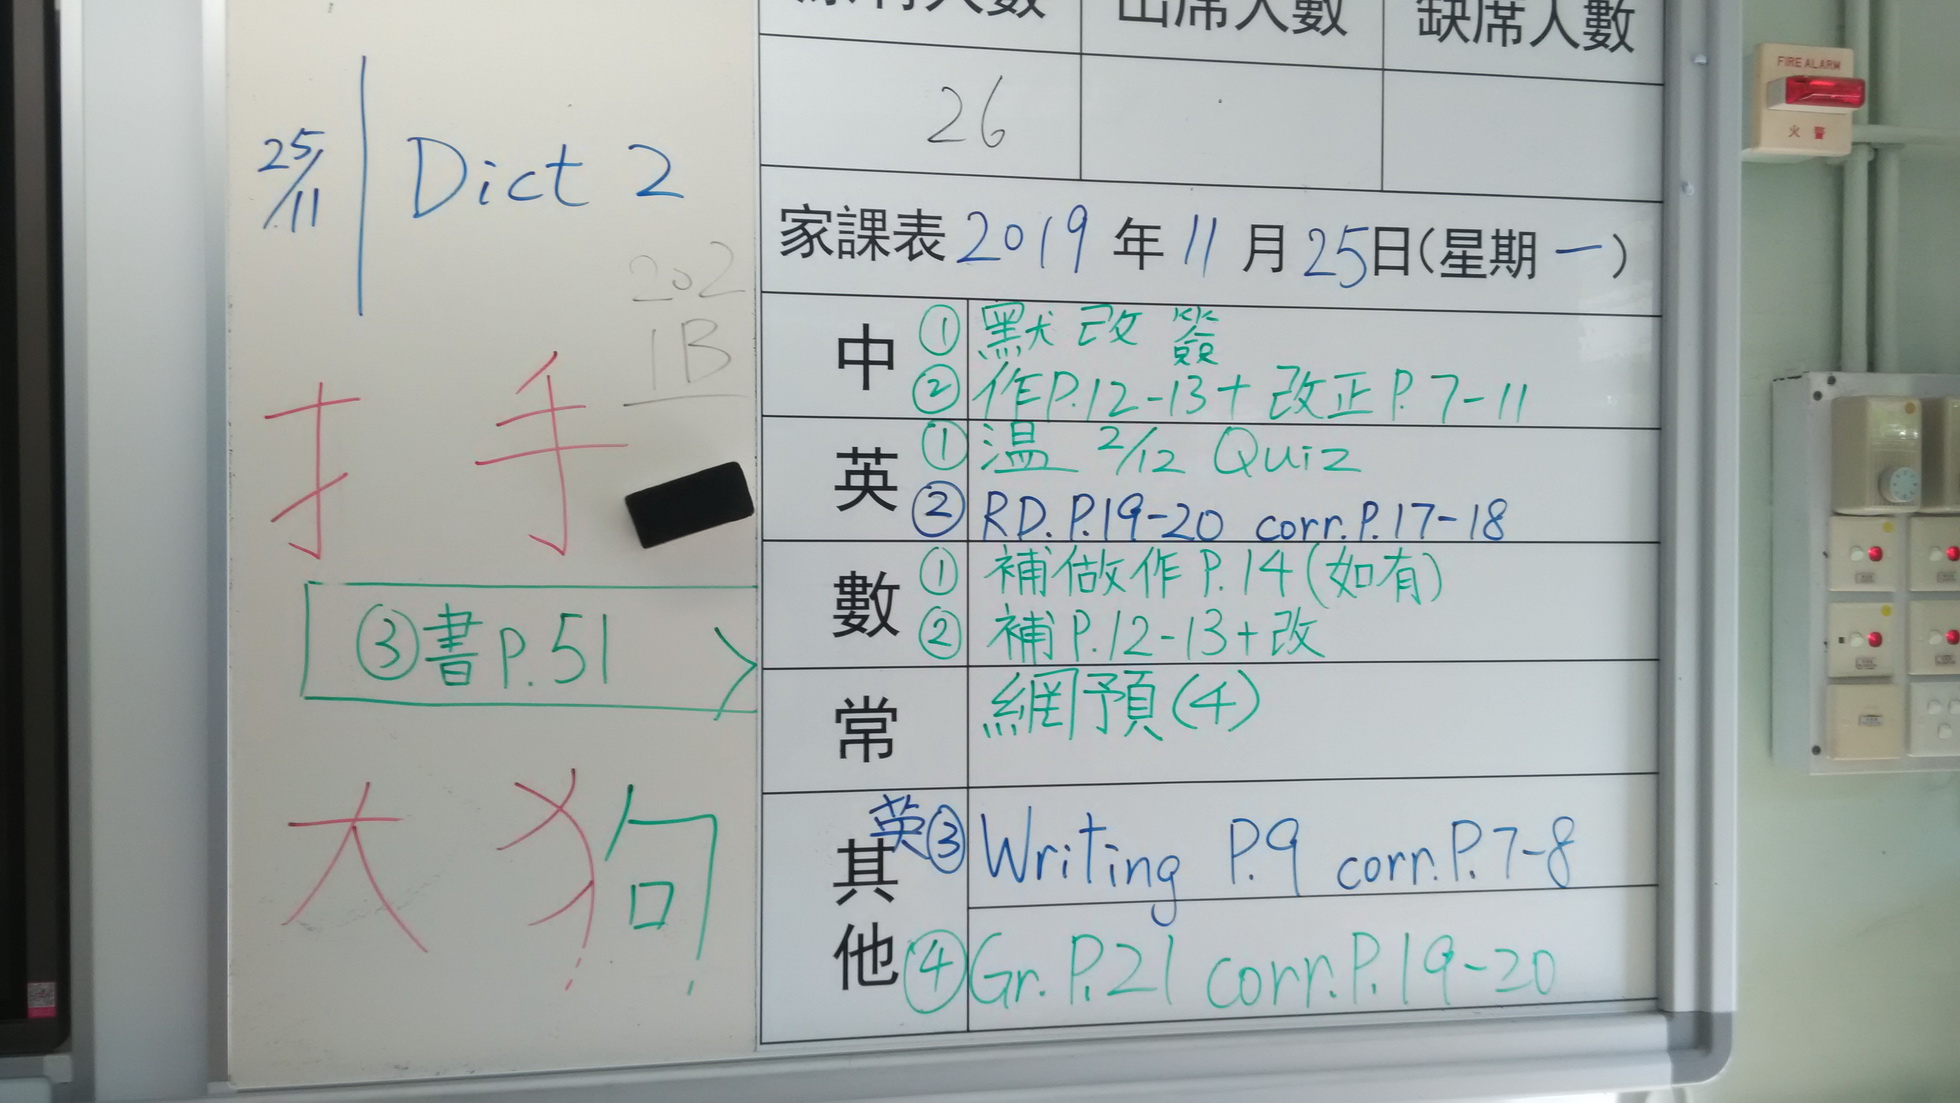 25/11 Dict 2
202
1B
扌 手
③書P.51
大 狗
原有人數 出席人數 缺席人數
26
家課表2019年11月25日(星期一)
中 ①默改簽
②作P.12-13+改正P.7-11
英 ①温 2/12 Quiz
②RD.P.19-20 corr.P.17-18
數 ①補做作P.14(如有)
②補P.12-13+改
常 網預(4)
其他 英③Writing P.9 corr.P.7-8
④Gr.P.21 corr.P.19-20
FIRE ALARM
火警